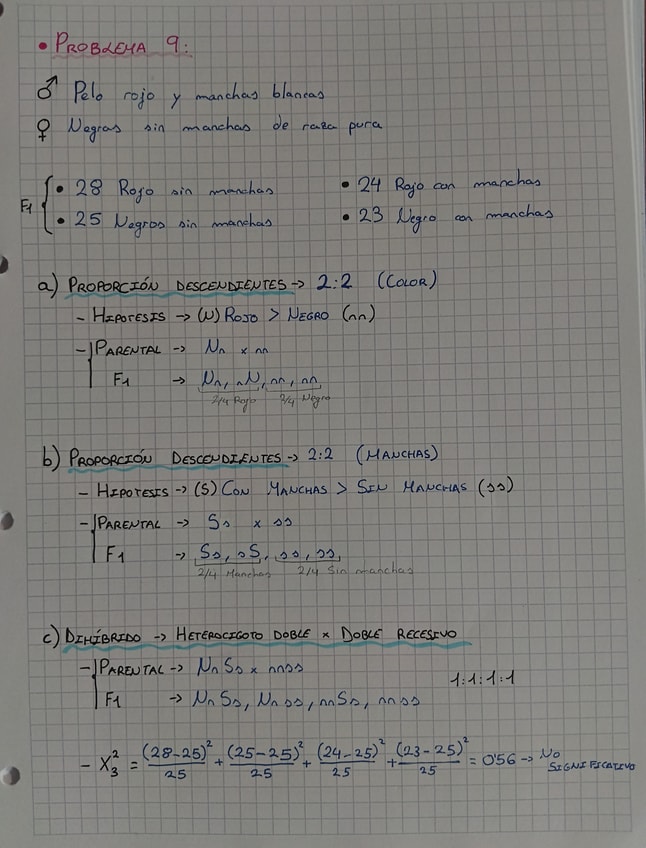 • PROBLEMA 9:
♂ Pelo rojo y manchas blancas
♀ Negras sin manchas de raza pura
F1 { • 28 Rojo sin manchas • 24 Rojo con manchas
• 25 Negros sin manchas • 23 Negro con manchas
a) PROPORCIÓN DESCENDIENTES → 2:2 (COLOR)
- HIPOTESIS → (N) ROJO > NEGRO (nn)
- PARENTAL → Nn x nn
F1 → Nn, nN, nn, nn
2/4 Rojo 2/4 Negro
b) PROPORCIÓN DESCENDIENTES → 2:2 (MANCHAS)
- HIPOTESIS → (S) CON MANCHAS > SIN MANCHAS (ss)
- PARENTAL → Ss x ss
F1 → Ss, sS, ss, ss,
2/4 Manchas 2/4 Sin manchas
c) DIHÍBRIDO → HETEROCIGOTO DOBLE x DOBLE RECESIVO
- PARENTAL → Nn Ss x nnss
F1 → Nn Ss, Nn ss, nn Ss, nn ss 1:1:1:1
- X²₃ = (28-25)²/25 + (25-25)²/25 + (24-25)²/25 + (23-25)²/25 = 0'56 → NO SIGNIFICATIVO